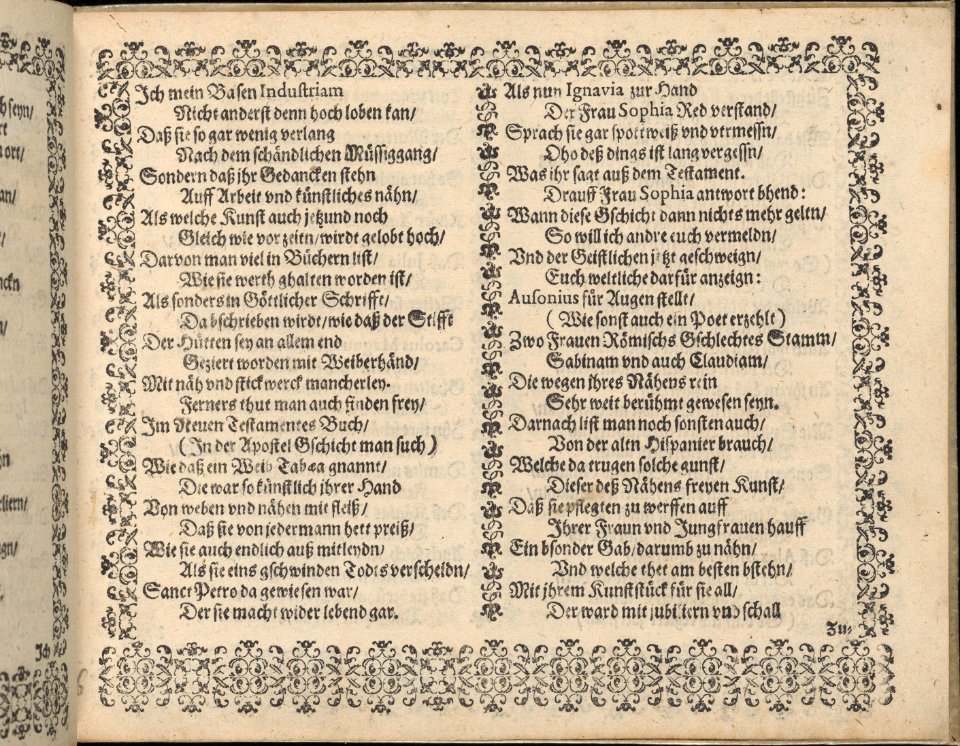 Ich mein Basen Industriam
Nicht anderst denn hoch loben kan/
Daß sie so gar wenig verlang
Nach dem schändlichen Müssiggang/
Sondern daß ihr Gedancken stehn
Auff Arbeit vnd künstliches nähn/
Als welche Kunst auch jetzund noch
Gleich wie vor zeiten/wirdt gelobt hoch/
Darvon man viel in Büchern list/
Wie sie werth ghalten worden ist/
Als sonders in Göttlicher Schrifft/
Da bschrieben wirdt/wie daß der Stifft
Der Hütten sey an allem end
Geziert worden mit Weiberhänd/
Mit näh vnd stickwerck mancherley.
Ferners thut man auch finden frey/
Im Neuen Testamentes Buch/
(In der Apostel Gschicht man such)
Wie daß ein Weib Tabea gnannt/
Die war so künstlich ihrer Hand
Von weben vnd nähen mit fleiß/
Daß sie von jederman hett preiß/
Wie sie auch endlich auß mitleydn/
Als sie eins gschwinden Todts verscheidn/
Sanct Petro da gewiesen war/
Der sie macht wider lebend gar.
Als nun Ignavia zur Hand
Der Frau Sophia Red verstand/
Sprach sie gar spottweiß vnd vermessn/
Oho deß dings ist lang vergessn/
Was ihr sagt auß dem Testament.
Drauff Frau Sophia antwort bhend:
Wann diese Gschicht dann nichts mehr geltn/
So will ich andre euch vermeldn/
Vnd der Geistlichen jetzt geschweign/
Euch weltliche darfür anzeign:
Ausonius für Augen stellt/
(Wie sonst auch ein Poet erzehlt)
Zwo Frauen Römischs Gschlechtes Stamm/
Sabinam vnd auch Claudiam/
Die wegen ihres Nähens rein
Sehr weit berühmt gewesen seyn.
Darnach list man noch sonsten auch/
Von der altn Hispanier brauch/
Welche da trugen solche gunst/
Dieser deß Nähens freyen Kunst/
Daß sie pflegten zu werffen auff
Ihrer Fraun vnd Jungfrauen hauff
Ein bsonder Gab/darumb zu nähn/
Vnd welche thet am besten bstehn/
Mit ihrem Kunststück für sie all/
Der ward mit jubiliern vnd schall
Zu-